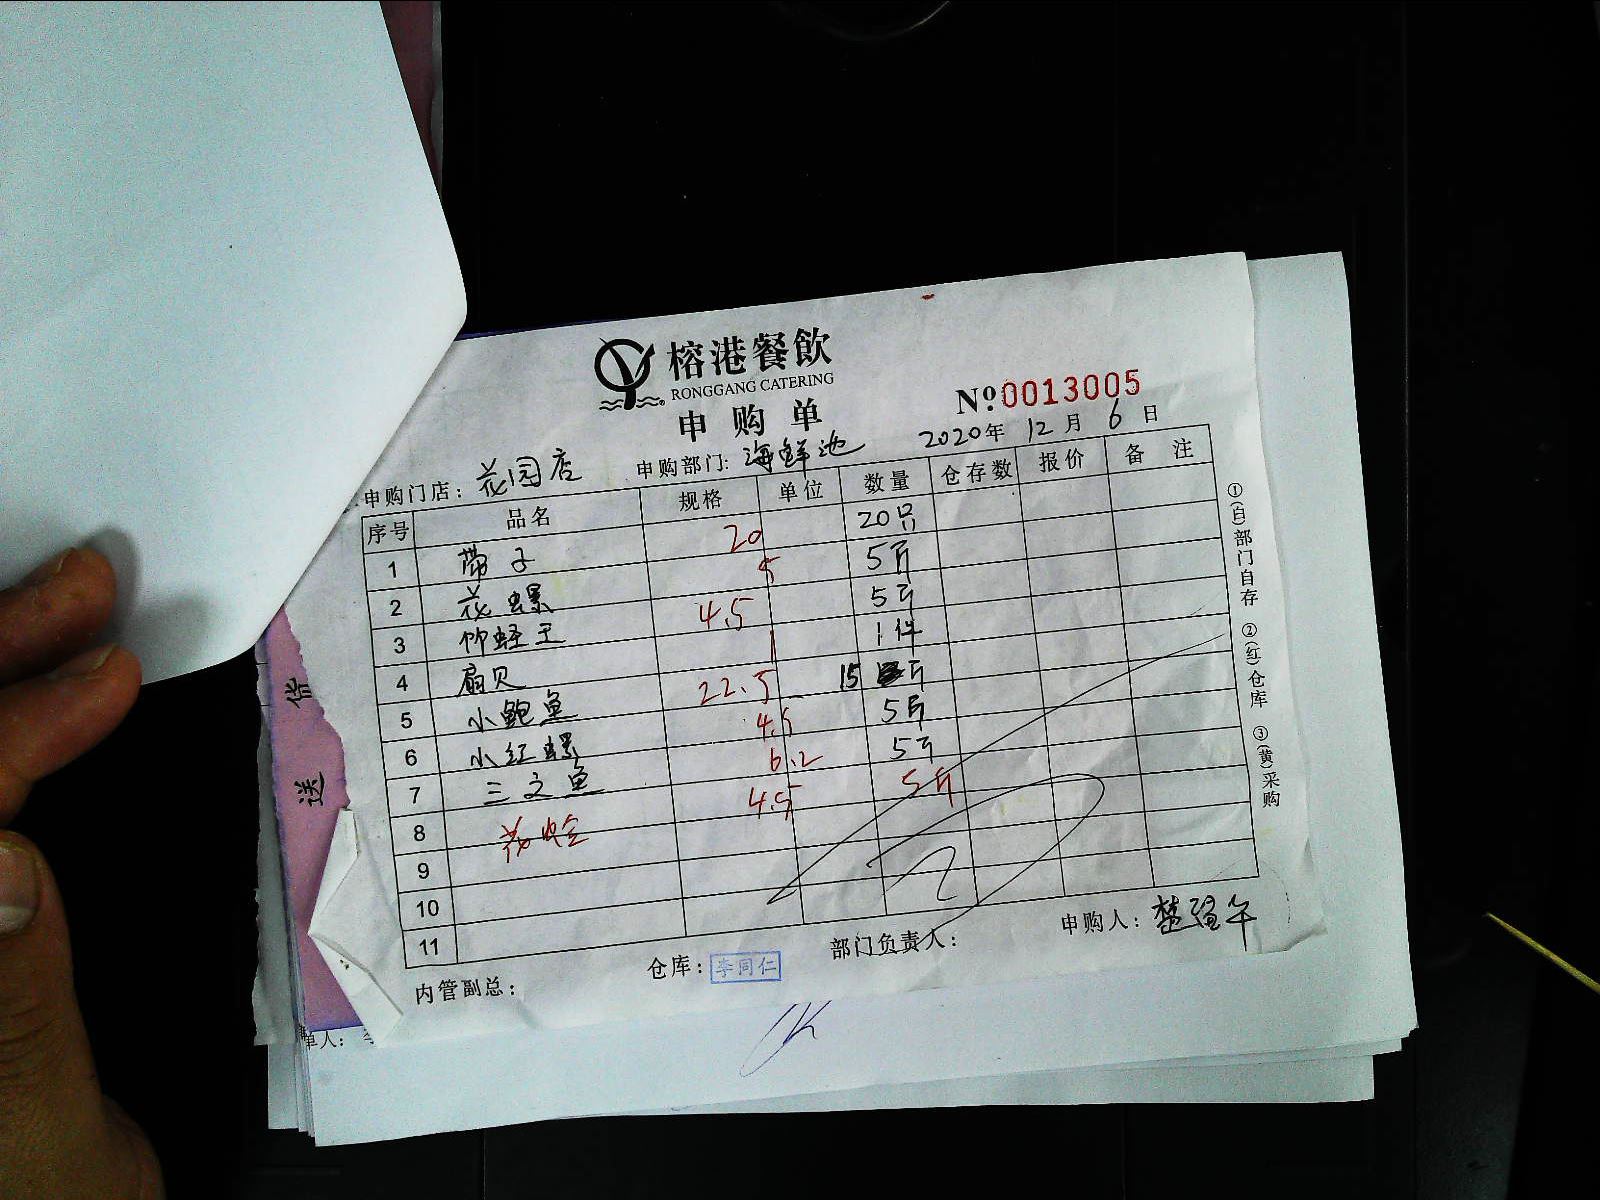 榕港餐飲
RONGGANG CATERING
申购单
№0013005
申购门店：花园店 申购部门：海鲜池 2020年12月6日
序号 品名 规格 单位 数量 仓存数 报价 备注
1 带子 20 20只
2 花螺 5 5斤
3 竹蛏王 4.5 5斤
4 扇贝 1 1件
5 小鲍鱼 22.5 15斤
6 小红螺 4.5 5斤
7 三文鱼 6.2 5斤
8 花蛤 4.5 5斤
9
10
11
内管副总： 仓库：李同仁 部门负责人： 申购人：
①(白)部门自存 ②(红)仓库 ③(黄)采购
送货
单人：